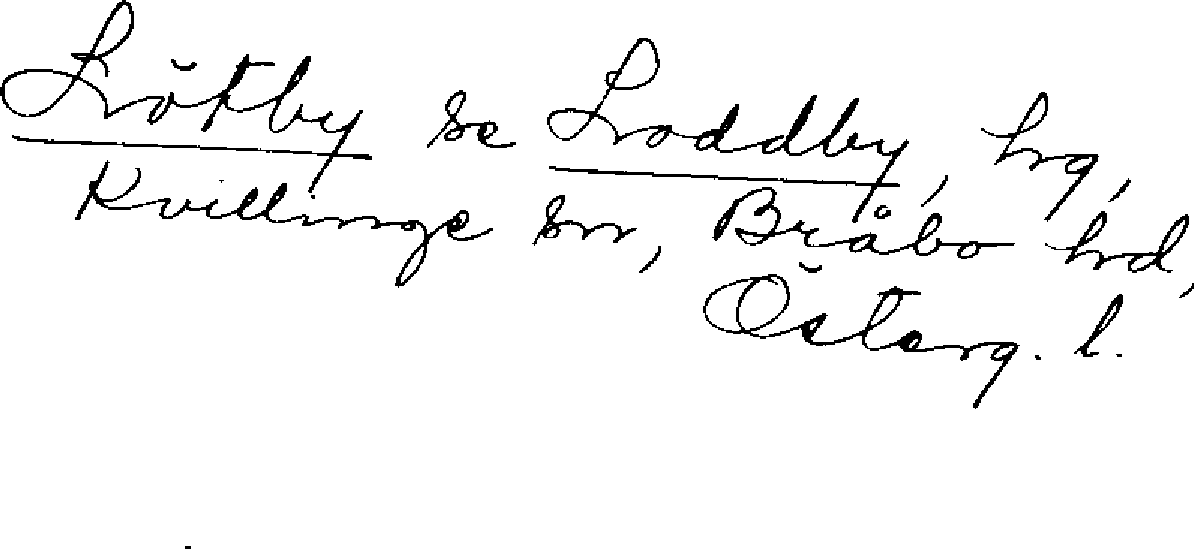 Lötby se Loddby, hrg,
Kvillinge sn, Bråbo hrd,
Österg. l.